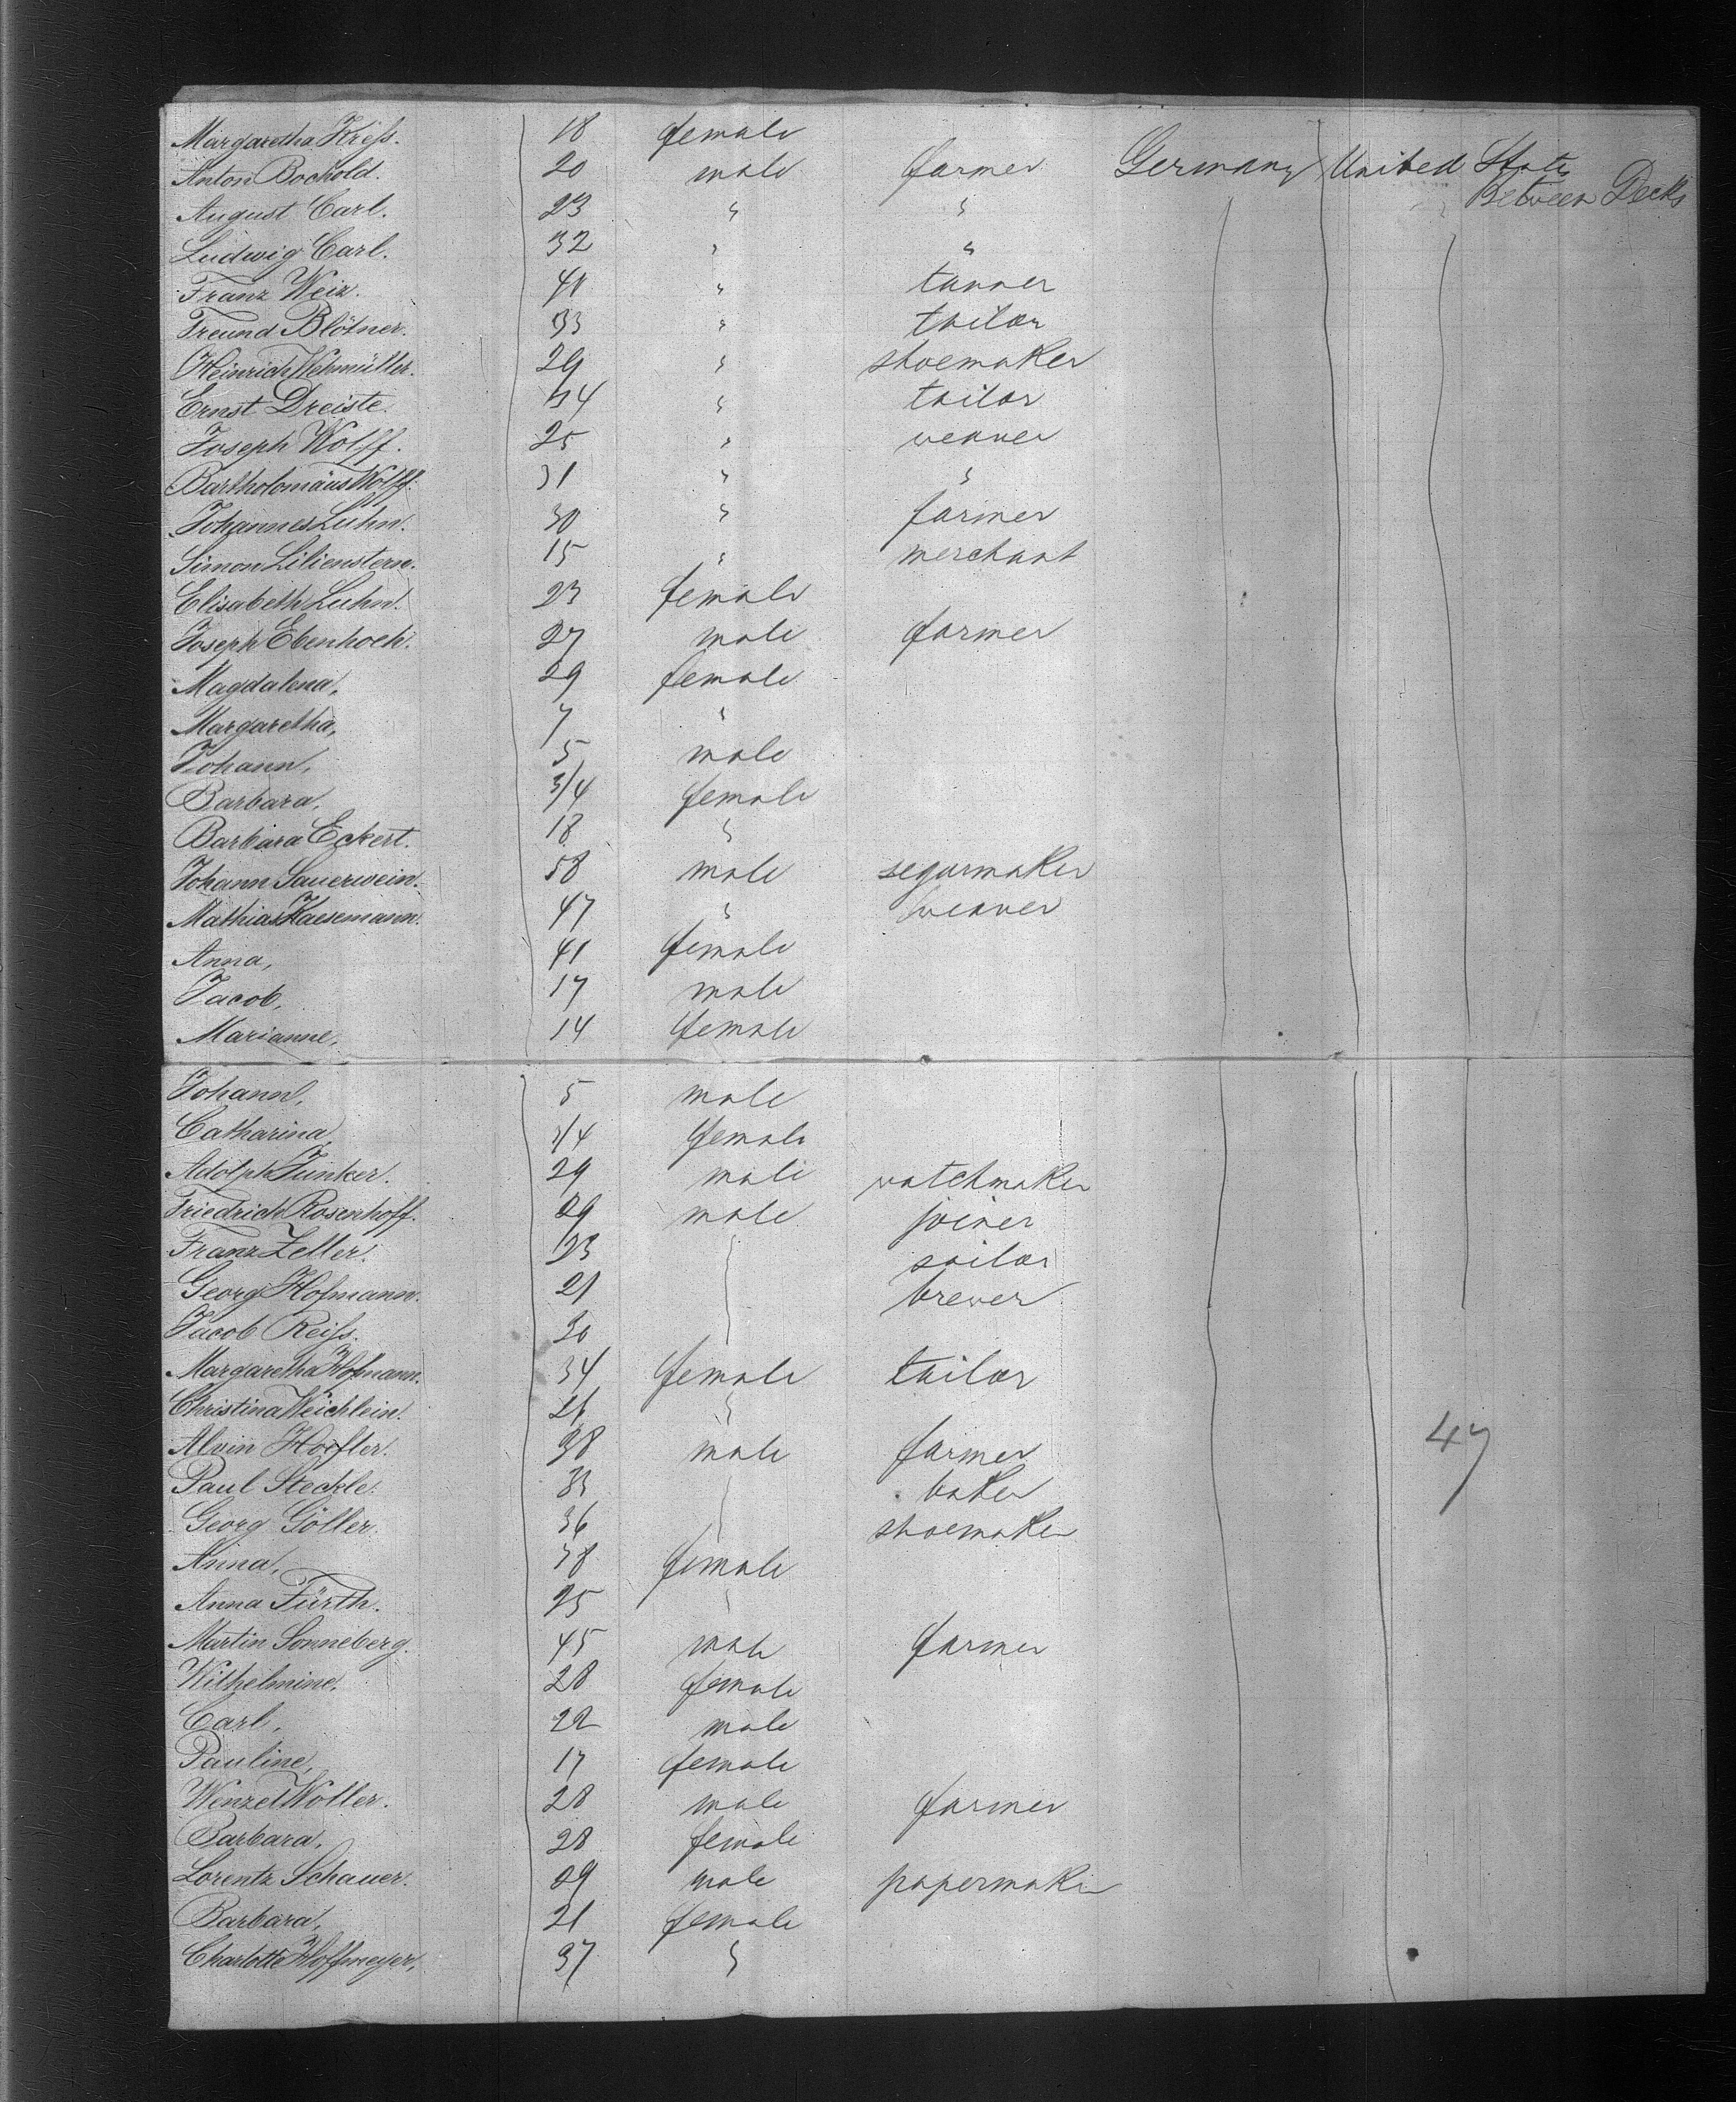 Margaretha Kress. 18 female
Anton Bochold. 20 male farmer Germany United States
August Carl. 23 " " Between Decks
Ludwig Carl. 32 " "
Franz Weiz. " tanner
Freund Blötner. 33 " tailor
Heinrich Wehmüller. 29 " shoemaker
Ernst Dreiste. " tailor
Joseph Wolff. 25 " weaver
Bartholomäus Wolff. 31 " "
Johannes Luhn. 30 " farmer
Simon Lilienstern. 15 " merchant
Elisabeth Luhn. 23 female
Joseph Ebenhoch. 27 male farmer
Magdalena, 29 female
Margaretha, 7 "
Johann, 5 male
Barbara, 3/4 female
Barbara Eckert. 18 "
Johann Sauerwein. 58 male segarmaker
Mathias Kaesemann. 47 " weaver
Anna, 41 female
Jacob, 17 male
Marianne, 14 female
Johann, 5 male
Catharina, 3/4 female
Adolph Junker. 29 male watchmaker
Friedrich Rosenhoff. 29 male joiner
Franz Zeller. 23 sailor
Georg Hofmann. 21 brewer
Jacob Reiss. 30
Margaretha Hofmann. 34 female tailor
Christina Weichlein. 26 "
Alvin Hoefler. 38 male farmer 47
Paul Steckle. 33 baker
Georg Göller. 36 shoemaker
Anna, 38 female
Anna Fürth. 25 "
Martin Sonneberg. 45 male farmer
Wilhelmine, 28 female
Carl, 22 male
Pauline, 17 female
Wenzel Woller. 28 male farmer
Barbara, 28 female
Lorentz Schauer. 29 male papermaker
Barbara, 21 female
Charlotte Hoffmeyer, 37 "